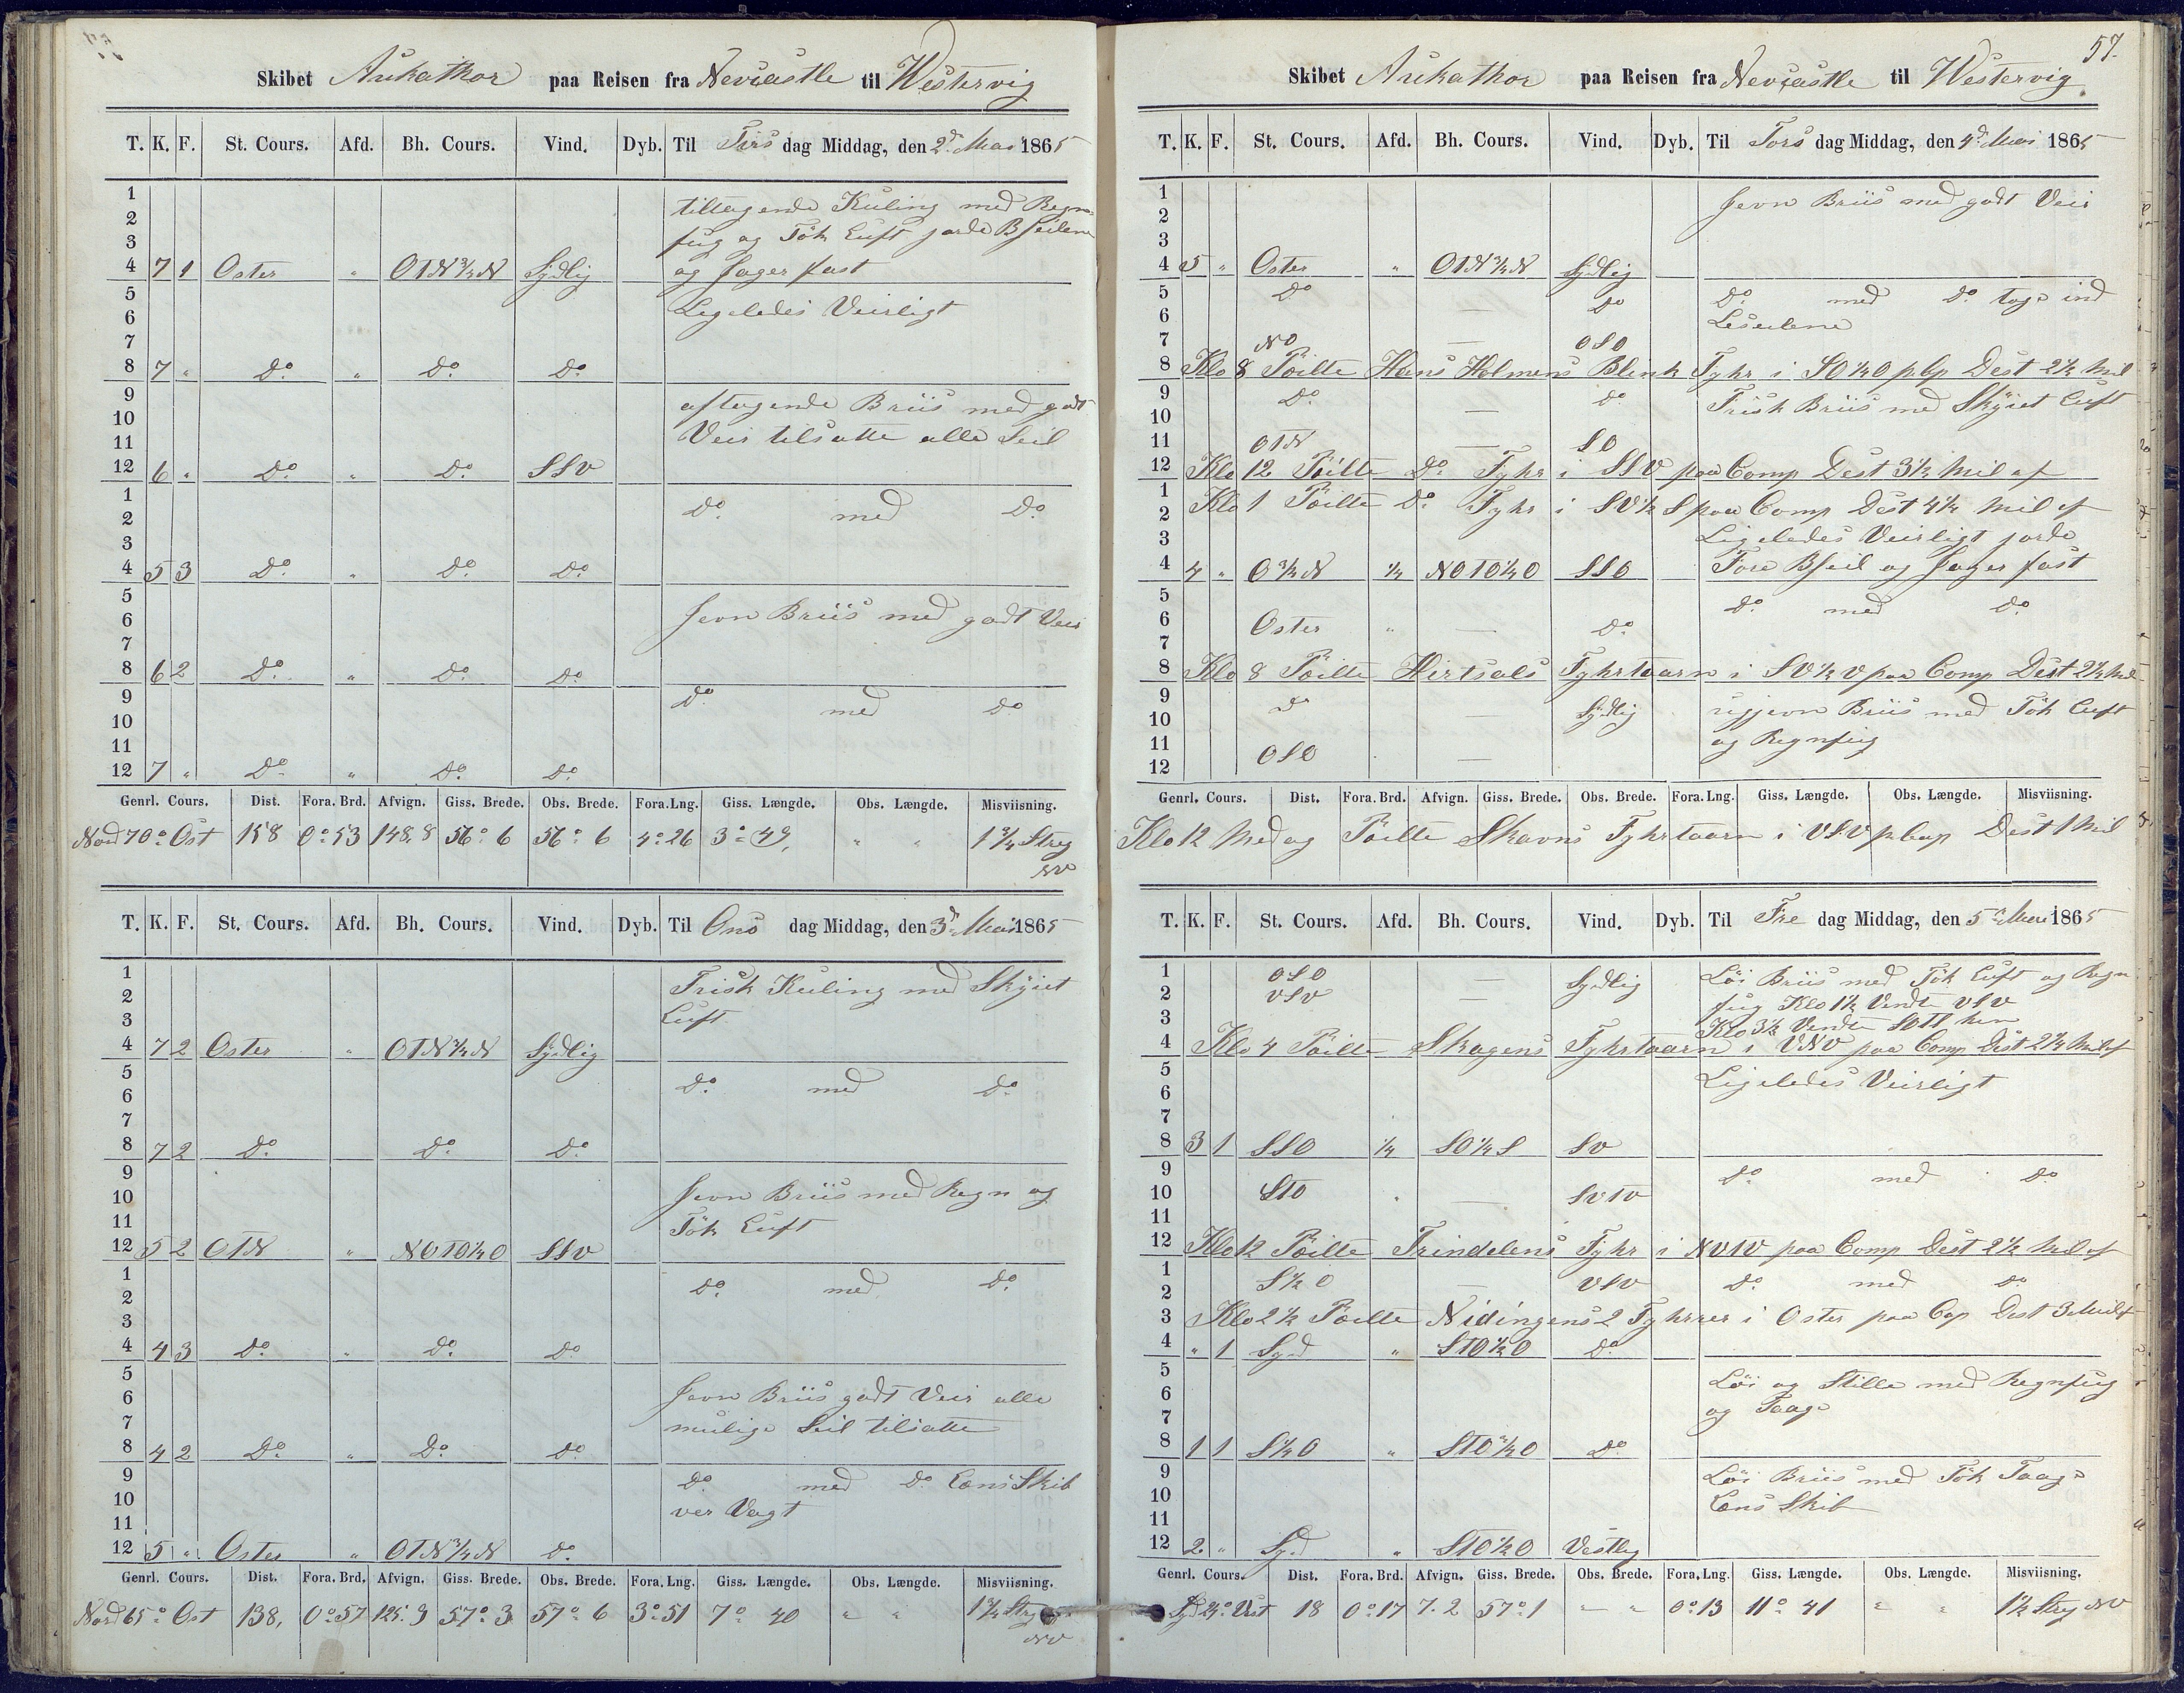 Skibet Aukathor paa Reisen fra Nevcastle til Westervig
T. K. F. St. Cours. Afd. Bh. Cours. Vind. Dyb. Til Tirs dag Middag, den 2d Mai 1865
1 tiltagende Kuling med Regn-
2 fug og Tök Luft jorde B Seilene
3
4 7 1 Oster " OTN 3/4 N Sÿdlig og Jager fast
5 Ligeledes Veirligt
6
7
8 7 " Do " Do Do
9 aftagende Briis med godt
10 Veir tilsatte alle Seil
11
12 6 " Do " Do SSV
1 Do med Do
2
3
4 5 3 Do " Do Do
5 Jevn Briis med godt Veir
6
7
8 6 2 Do " Do Do
9 Do med Do
10
11
12 7 " Do " Do Do
Genrl. Cours. Dist. Fora. Brd. Afvign. Giss. Brede. Obs. Brede. Fora. Lng. Giss. Længde. Obs. Længde. Misviisning.
Nord 70° Ost 158 0° 53 148,8 56° 6 56° 6 4° 26 3° 49, " " 1 3/4 Streg
NV
T. K. F. St. Cours. Afd. Bh. Cours. Vind. Dyb. Til Ons dag Middag, den 3d Mai 1865
1 Frisk Kuling med Skÿiet
2 Luft
3
4 7 2 Oster " OTN 3/4 N Sÿdlig
5 Do med Do
6
7
8 7 2 Do Do Do
9 Jevn Briis med Regn og
10 Tök Luft
11
12 5 2 OTN " NOTO 1/4 O SSV
1 Do med Do
2
3
4 4 3 Do " Do Do
5 Jevn Briis godt Veir alle
6 mulige Seil tilsatte
7
8 4 2 Do " Do Do
9 Do med Do Læns Skib
10 ver Vagt
11
12 5 " Oster " OTN 3/4 N Do
Genrl. Cours. Dist. Fora. Brd. Afvign. Giss. Brede. Obs. Brede. Fora. Lng. Giss. Længde. Obs. Længde. Misviisning.
Nord 65° Ost 138, 0° 57 125. 9 57° 3 57° 6 3° 51 7° 40 " " 1 3/4 Streg
NV
57.
Skibet Aukathor paa Reisen fra Nevcastle til Westervig.
T. K. F. St. Cours. Afd. Bh. Cours. Vind. Dyb. Til Tors dag Middag, den 4d Mai 1865
1 Jevn Briis med godt Veir
2
3
4 5 " Oster " OTN 3/4 N Sÿdlig
5 Do — Do Do med Do toge ind
6 Leseilene
7 NO — OSO
8 Klo 8 Peilte Hans Holmens Blink Fyhr i SO 1/4 O p. Cp Dest 2 1/2 Mil
9 Do — Do Frisk Briis med Skÿiet Luft
10
11 OTN — SO
12 Klo 12 Peilte Do Fyhr i SSV paa Comp Dest 3 1/2 Mil af
1 Klo 1 Peilte Do Fyhr i SV 1/2 S paa Comp Dest 4 1/2 Mil af
2
3 Ligeledes Veirligt jorde
4 4 " O 3/4 N 1/4 NOTO 1/4 O SSO Fore B Seil og Jager fast
5 Do med Do
6 Oster " — Do
7
8 Klo 8 Peilte Hirtsals Fyhrtaarn i SV 1/2 V paa Comp Dest 2 1/2 Mil
9 Do — Sÿdlig ujjevn Briis med Tök Luft
10
11 OSO — og Regnfug
12
Genrl. Cours. Dist. Fora. Brd. Afvign. Giss. Brede. Obs. Brede. Fora. Lng. Giss. Længde. Obs. Længde. Misviisning.
Klo 12 Medag Peilte Skavns Fyhrtaarn i VSV p. Comp Dest 1 Mil
T. K. F. St. Cours. Afd. Bh. Cours. Vind. Dyb. Til Fre dag Middag, den 5te Mai 1865
1 OSO — Sydlig Löi Briis med Tök Luft og Regn
2 VSV — fug Klo 1 1/2 Vendt VSV
3 Klo 3 1/2 Vendte hen
4 Klo 4 Peilte Skagens Fyhrtaarn i VNV paa Comp Dist 2 1/4 Mil af
5 Ligeledes Veirligt
6
7
8 3 1 SSO 1/4 SO 1/4 S SV
9 Do med Do
10 STO — SVTV
11
12 Klo 12 Peilte Trindelens Fyhr i NVTV paa Comp Dest 2 1/2 Mil af
1 S 1/2 O — VSV Do med Do
2
3 Klo 2 1/2 Peilte Nidingens 2 Fyhrner i Oster paa Cop Dest 3 Mil af
4 " 1 Syd " STO 1/2 O Do
5 Löi og Stille med Regnfug
6
7 og Taage
8 1 1 S 1/4 O " STO 3/4 O Do
9 Löi Briis med Tök Taage
10 Læns Skib
11
12 2 " Syd " STO 1/2 O Vestlig
Genrl. Cours. Dist. Fora. Brd. Afvign. Giss. Brede. Obs. Brede. Fora. Lng. Giss. Længde. Obs. Længde. Misviisning.
Syd 24° Vest 18 0° 17 7. 2 57° 1 " " 0° 13 11° 41 " " 1 1/2 Streg NV